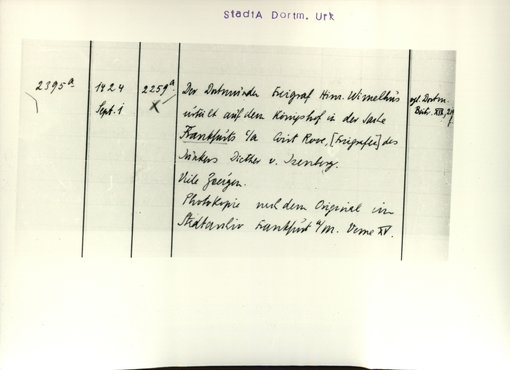 StadtA Dortm. Urk
2395a.
1424
Sept. 1
2259a.
Der Dortmunder Freigraf Hinr. Wimelhus
urteilt auf dem Königshof in der Sache
Frankfurts c/a Cort Rove, [Freigrafen] des
Junkers Diether v. Isenburg.
Viele Zeugen.
Photokopie nach dem Original im
Stadtarchiv Frankfurt a/M. Veme XV.
vgl. Dortm.
Beitr. XIX,